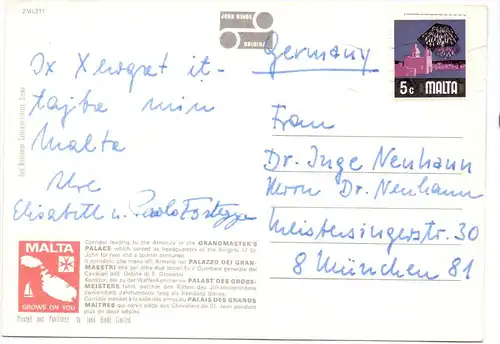 ZMI-311
JOHN HINDE
ORIGINAL
Germany
5c MALTA
Ix Xhopet it-
tajba minn
Malta
Ihre
Elisabeth u. Paolo
Frau
Dr. Inge Neuhann
Herrn Dr. Neuhann
Meistersingerstr. 30
8 München 81
MALTA
GROWS ON YOU
Corridor leading to the Armoury in the GRANDMASTER'S
PALACE which served as headquarters of the Knights of St.
John for two and a quarter centuries.
Il corridoio che mena all' Armeria nel PALAZZO DEI GRAN-
MAESTRI che per oltre due secoli fu il Quartiere generale dei
Cavalieri dell' Ordine di S. Giovanni.
Korridor, der zu der Waffenkammer im PALAST DES GROSS-
MEISTERS führt, welcher den Rittern des Johanniterordens
zweieinhalb Jahrhunderte lang als Residenz diente.
Corridor menant à la salle des armures du PALAIS DES GRANDS
MAITRES qui servit siège aux Chevaliers de St. Jean pendant
plus de deux siècles.
Printed and Published by John Hinde Limited.